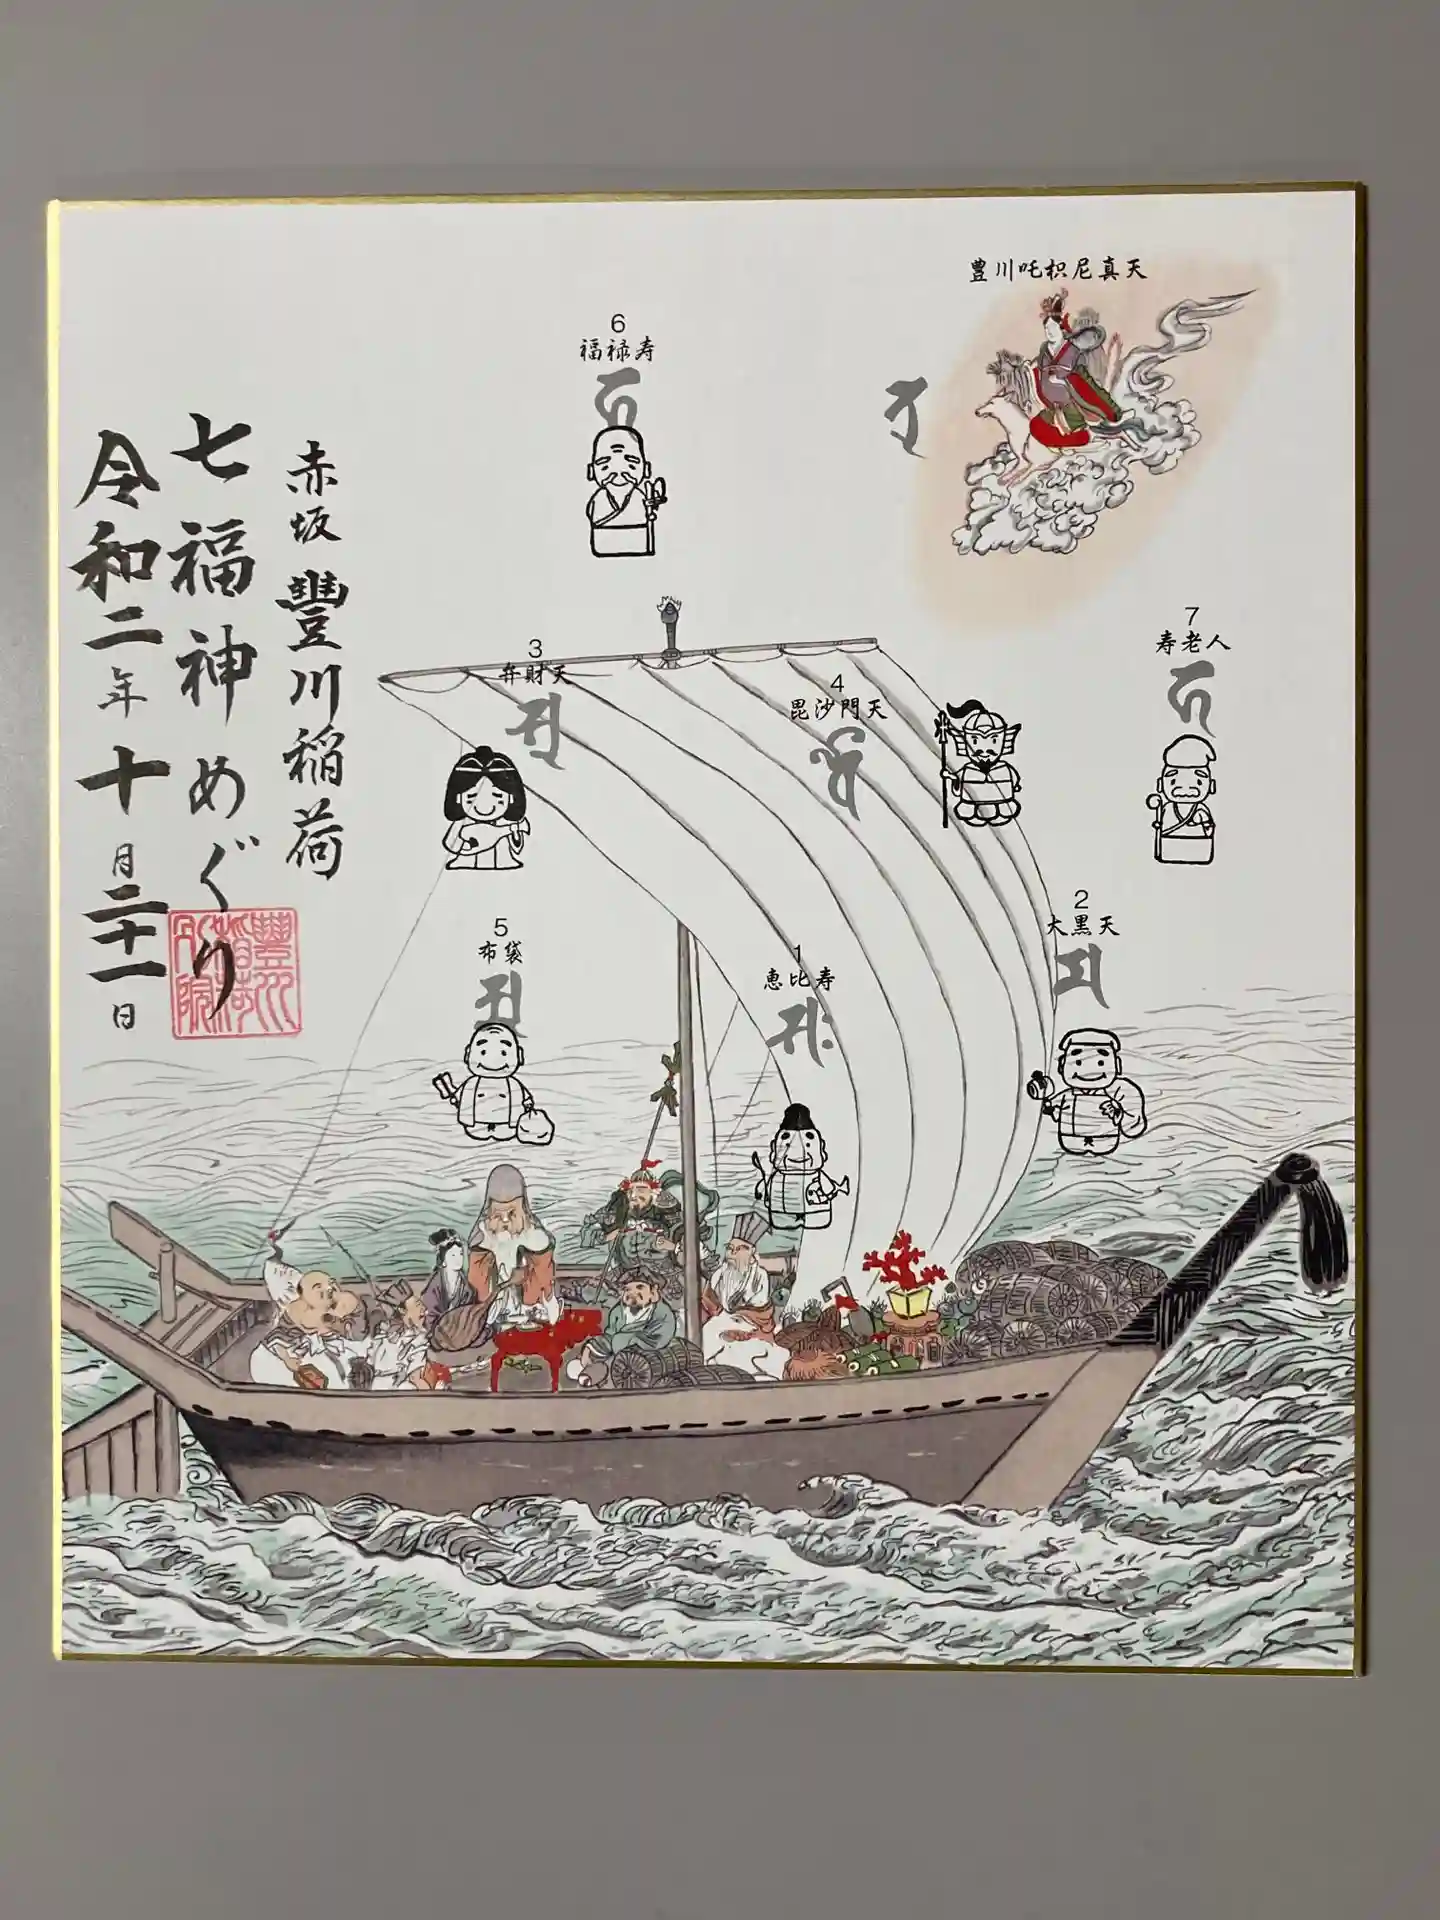 赤坂 豐川稲荷
七福神めぐり
令和二年十月二十一日
豊川吒枳尼真天
6
福禄寿
7
寿老人
3
弁財天
4
毘沙門天
2
大黒天
5
布袋
1
恵比寿